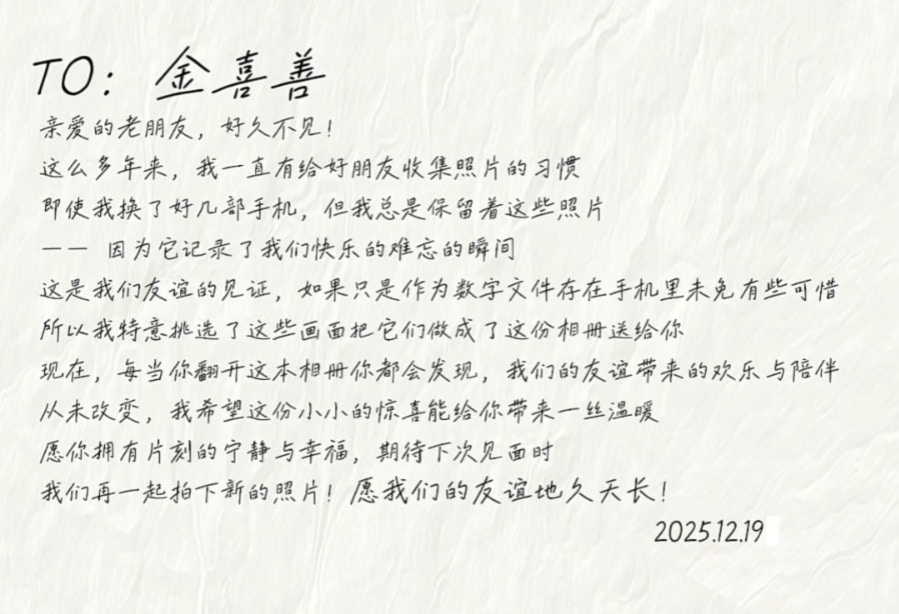 TO：金喜善
亲爱的老朋友，好久不见！
这么多年来，我一直有给好朋友收集照片的习惯
即使我换了好几部手机，但我总是保留着这些照片
—— 因为它记录了我们快乐的难忘的瞬间
这是我们友谊的见证，如果只是作为数字文件存在手机里未免有些可惜
所以我特意挑选了这些画面把它们做成了这份相册送给你
现在，每当你翻开这本相册你都会发现，我们的友谊带来的欢乐与陪伴
从未改变，我希望这份小小的惊喜能给你带来一丝温暖
愿你拥有片刻的宁静与幸福，期待下次见面时
我们再一起拍下新的照片！愿我们的友谊地久天长！
2025.12.19